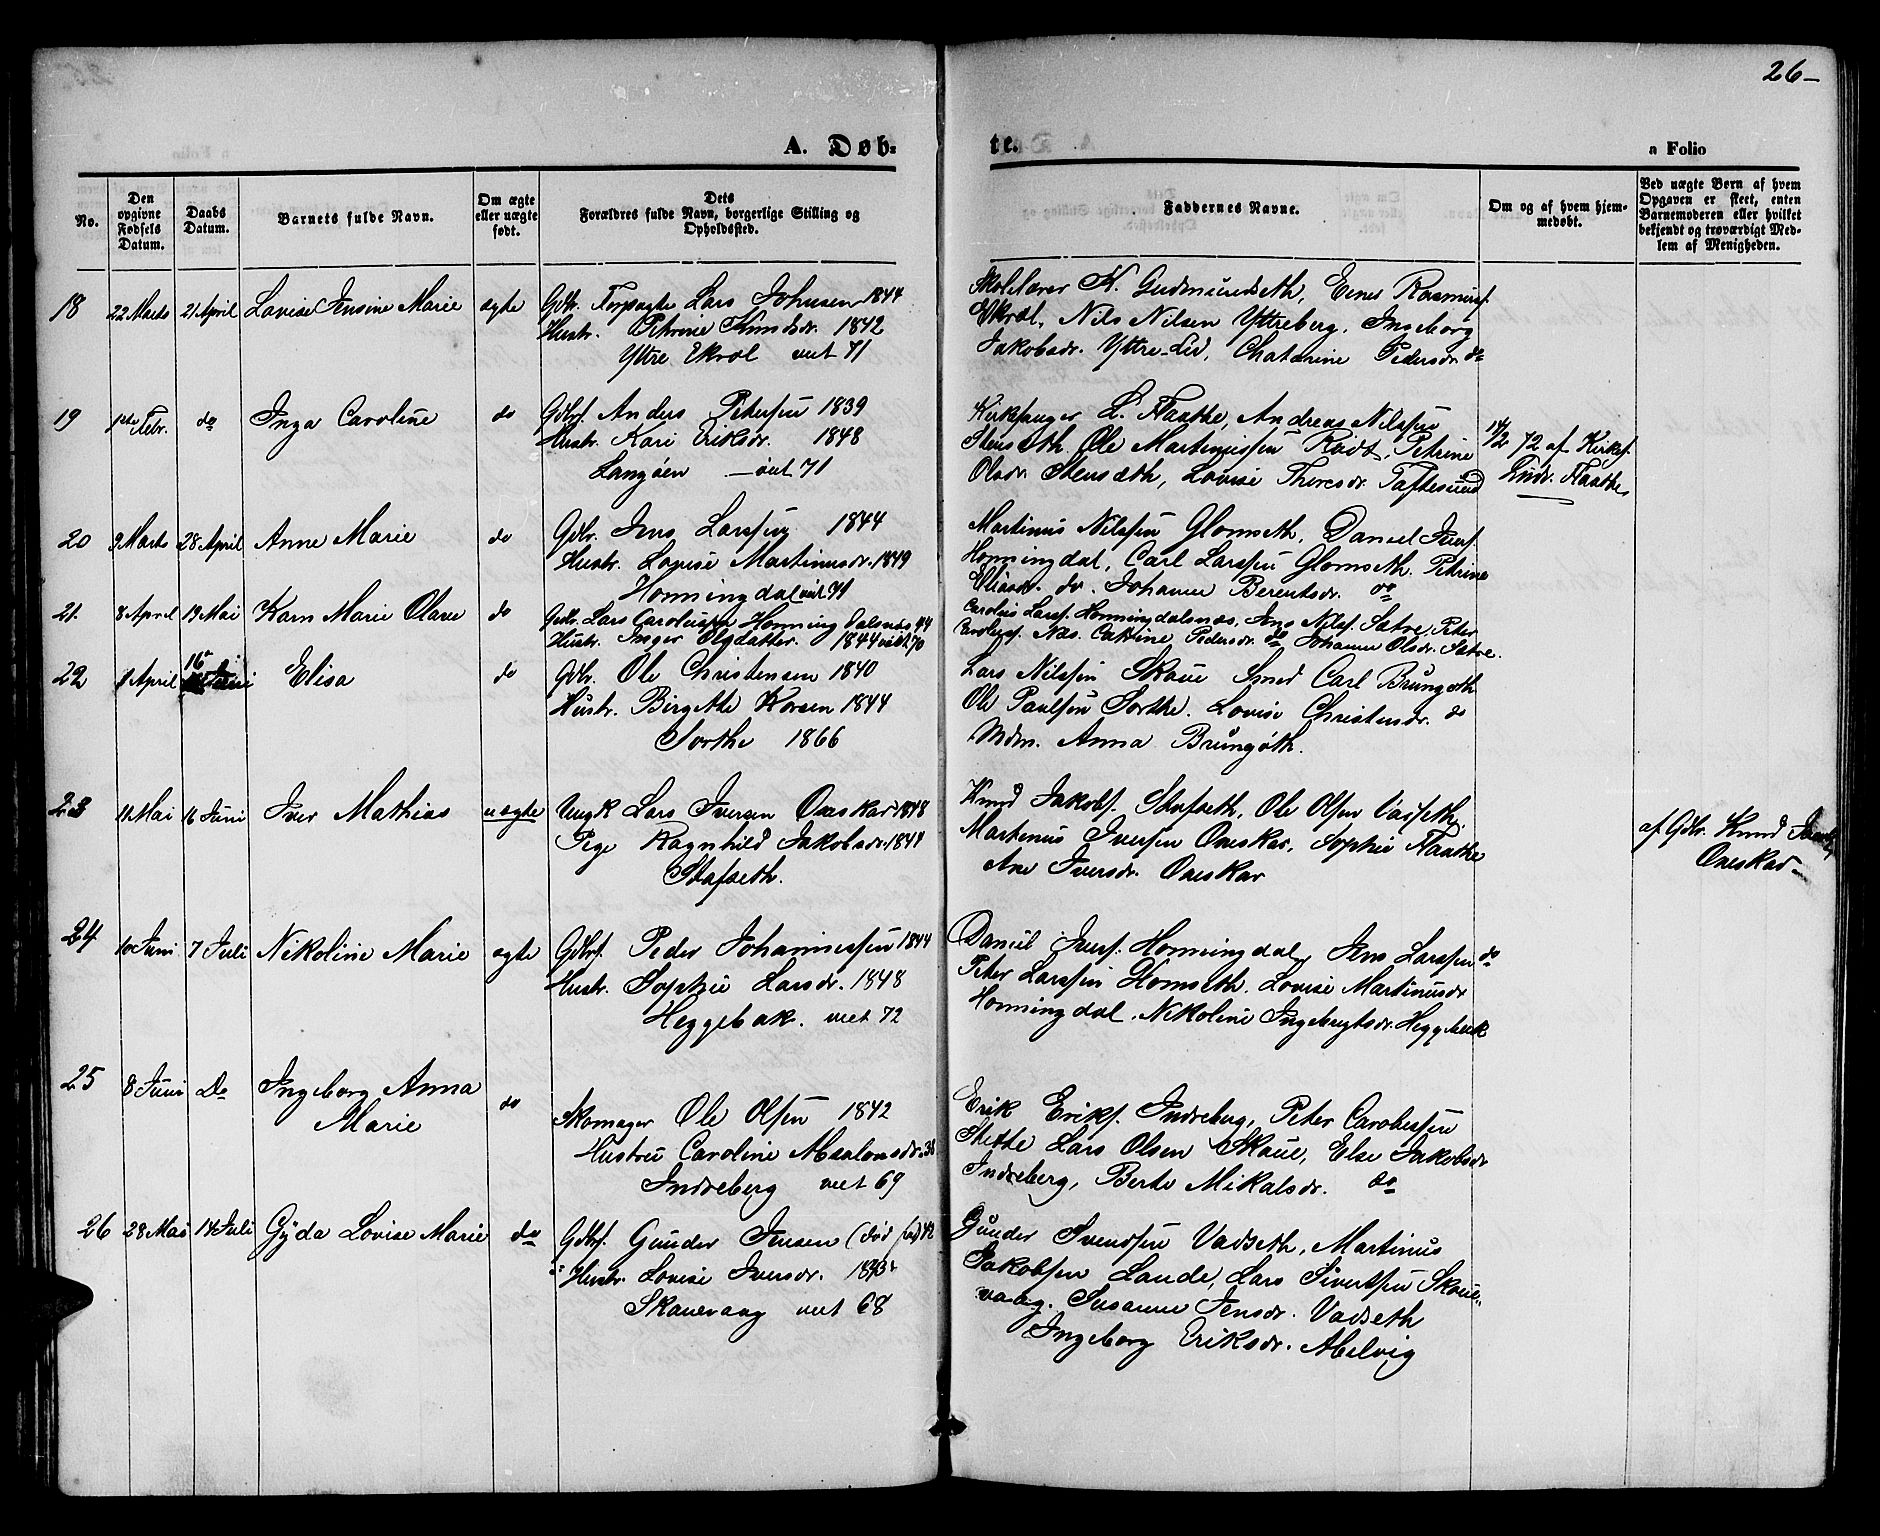 26-
A. Døb-
te.
a Folio
No.
Den opgivne Fødsels Datum.
Daabs Datum.
Barnets fulde Navn.
Om ægte eller uægte født.
Dets Forældres fulde Navn, borgerlige Stilling og Opholdssted.
Faddernes Navne.
Om og af hvem hjemmedøbt.
Ved uægte Børn af hvem Opgaven er skeet, enten Barnemoderen eller hvilket bekjendt og troværdigt Medlem af Menigheden.
18 22 Marts 21 April Lovise Jensine Marie ægte Gdbr. Lars Johnsen 1844
Hustr. Petrine Knudsdr. 1842
Yttre Ekrol viet 71
Skolelærer K. Gudmundseth, Enes Rasmuss.
Ekrol, Nils Nilsen Yttreberg, Ingeborg
Jakobsdr. Yttre-Lid, Chatarine Pedersdr. do
19 1ste Febr. do Inga Caroline do Gdbrf. Anders Petersen 1839
Hustr. Kari Eriksdr. 1848
Langøen viet 71
Kirkesanger L. Flaathe, Andreas Nilssen
Stenseth, Ole Martinussen Rødt, Petrine
Olsdr. Stensæth, Lovise Thoresdr. Taftesund
14/2 72 af Kirkes.
Lndr. Flaathe
20 9 Marts 28 April Anne Marie do Gdbr. Jens Larssen 1844
Hustr. Lovise Martinusdr. 1849
Honningdal viet 71
Martinus Nilssen Glomseth, Daniel Ivers.
Honningdal, Carl Larssen Glomseth, Petrine
Eliasdr. do. Johanne Berentsdr. do
21. 8 April 19 Mai Karn Marie Olave do Gdbr. Lars Carolussen Honningdalsnæs 44
Hustr. Inger Olsdatter. 1844 viet 70
Carolus Larss. Honningdalsnæs, Jens Nilss. Sætre, Peter
Caroluss. Næs. Cathrine Pedersdr. do Johanne Olsdr. Sætre.
22 1 April 16 Juni Elisa do Gdbr. Ole Christensen 1840
Hustr. Birgitte Korsen 1844
Sorthe 1866
Lars Nilssen Skaue Smed Carl Brungoth
Ole Paulsen Sorthe. Lovise Christensdr. do
Mdm. Anna Brungoth.
23 11 Mai 16 Juni Iver Mathias uægte Ungk Lars Iversen Oxeskar 1848
Pige Ragnhild Jakobsdr. 1844
Stafseth.
Knud Jakobs. Stafseth, Ole Olsen Vasseth,
Martinus Iversen Oxeskar, Sophie Flaathe
Ane Iversdr. Oxeskar
af Gdbr. Knud
Oxeskar
24 10 Juni 7 Juli Nikoline Marie ægte Gdbrf. Peder Johannessen 1844
Hustr. Sophie Larsdr. 1848
Heggebak. viet 72
Daniel Ivers. Honningdal, Jens Larssen do
Peter Larssen Glomseth. Lovise Martinusdr
Honningdal, Nikoline Ingebrigtsdr. Heggebak
25 8 Juni Do Ingeborg Anna
Marie do
Skomager Ole Olsen 1842
Hustru Caroline Absalonsdr. 38
Indreberg viet 69
Erik Eriks. Indreberg, Peter Carolussen
Stette Lars Olsen Skaue, Else Jakobsdr
Indreberg, Berte Mikalsdr. do
26 28 Mai 14 Juli Gyda Lovise Marie do Gdbrf. Gunder Jensen (død 42
Hustr. Lovise Iversdr.
Skauevaag viet 68
Gunder Svendsen Vadseth, Martinus
Jakobsen Lande, Lars Sivertsen Skaue-
vaag. Susanne Jensdr. Vadseth
Ingeborg Eriksdr. Abelvig